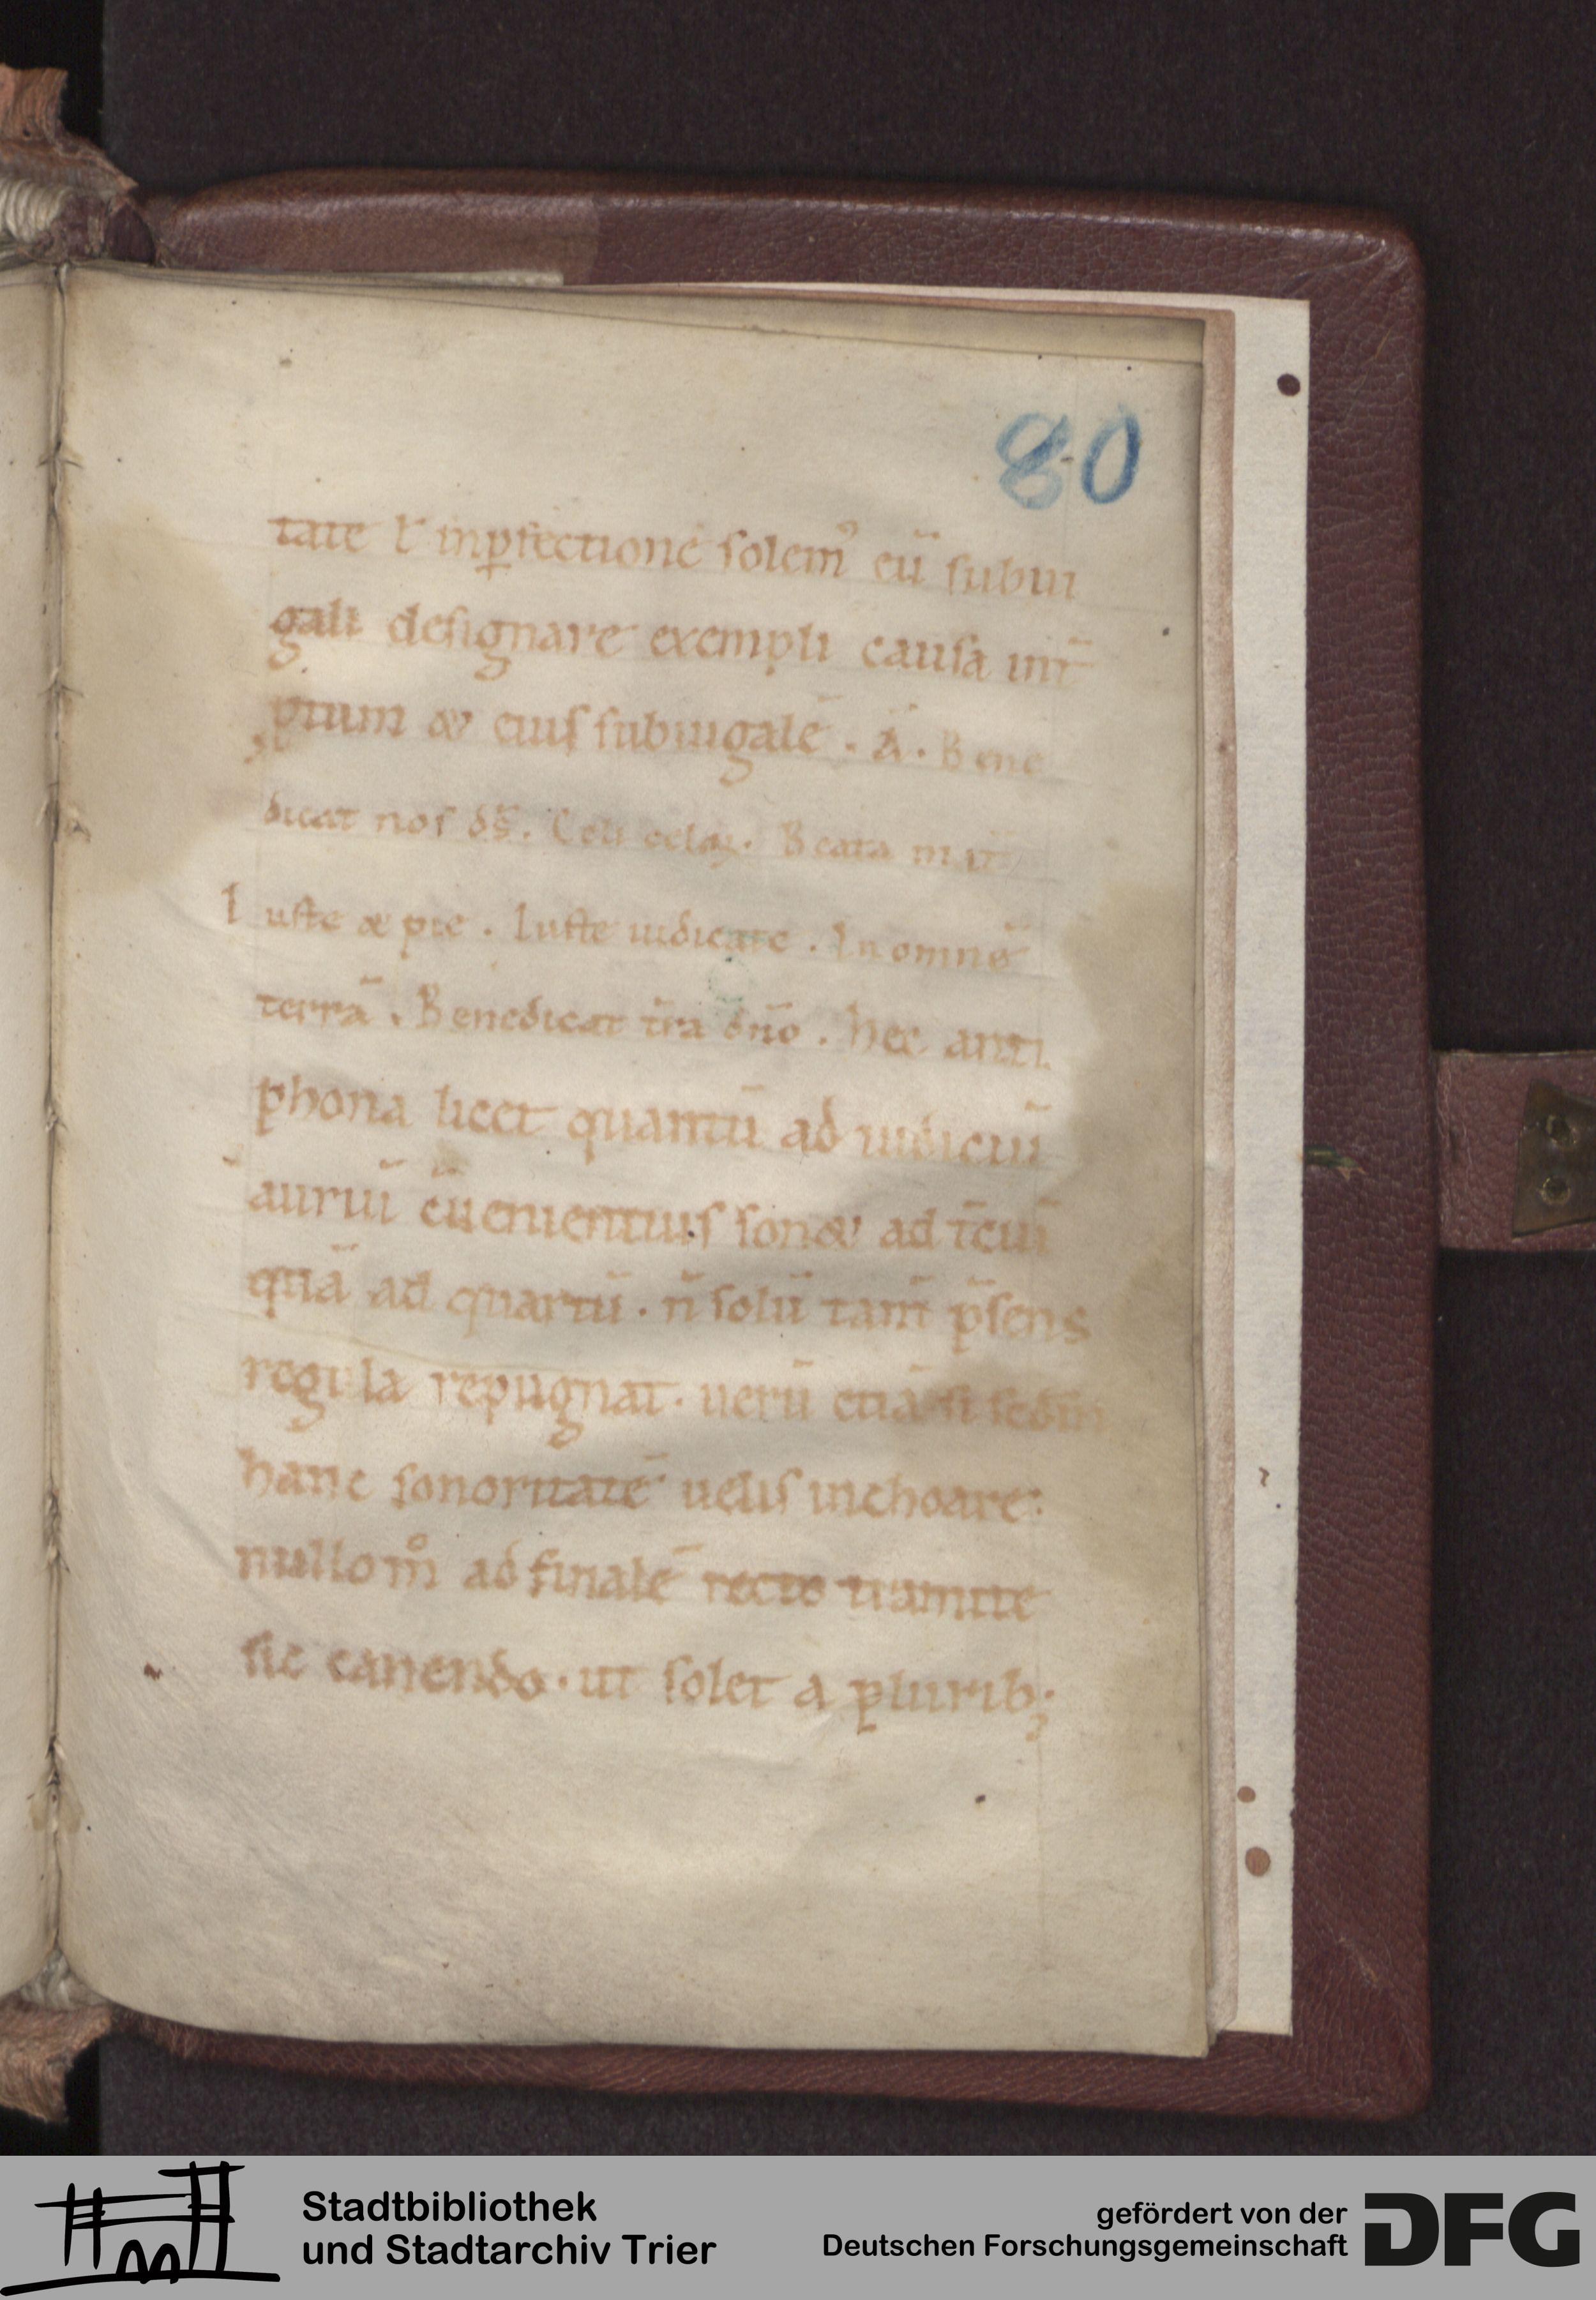 80
tate ł inꝑfectione solem᾽ eū subiu
gali designare exempli causa int̄
ptum & eius subiugalē. Ā. Bene
dicat nos d̄s. Celi celoꝝ. Beata m
Iuste & pie. Iuste iudicate. In omnē
terrā. Benedicat t̄ra dn̄o. Hec anti
phona licet quantū ad iudiciū
auriū c̄uenientius son& ad t̄ciū
quā ad quartū. n̄ solū tam̄ p̄sens
regula repugnat. uerū etiā si scd̄m
hanc sonoritatē uelis inchoare:
nullo m̊ ad finalē recto tramite
sic canendo. ut solet a plurib;
Stadtbibliothek
und Stadtarchiv Trier
gefördert von der
Deutschen Forschungsgemeinschaft
DFG